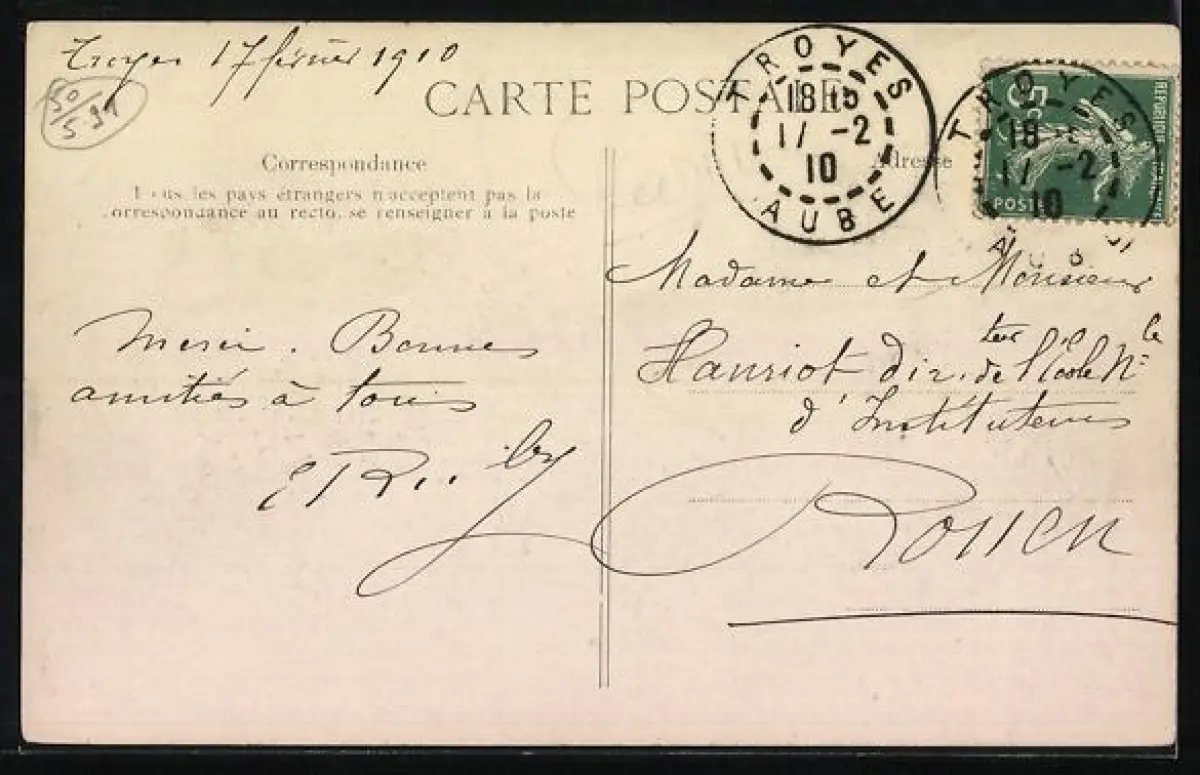 Troyes 17 février 1910
50/591
CARTE POSTALE
TROYES
18 15
17 -2
10
AUBE
5c
REPUBLIQUE
POSTES
TROYES
18
17 -2
10
Correspondance
Tous les pays étrangers n'acceptent pas la
correspondance au recto, se renseigner à la poste
Adresse
Merci. Bonnes
amitiés à tous
Madame et Monsieur
Hanriot dir.ter de l'École N.le
d'Instituteurs
Rouen